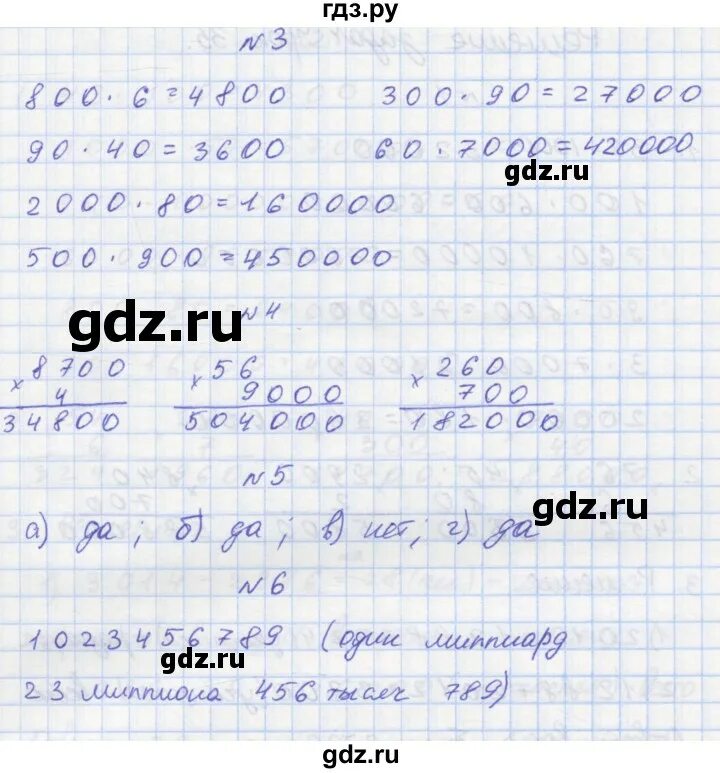 гдз.ру
№3
800 · 6 = 4800 300 · 90 = 27000
90 · 40 = 3600 60 · 7000 = 420000
gdz.ru
2000 · 80 = 160000
500 · 900 = 450000
№4
gdz.ru
8700 56 260
× 4 × 9000 × 700
34800 504000 182000
№5
gdz.ru
а) да; б) да; в) нет; г) да
№6
1023456789 (один миллиард
gdz.ru
23 миллиона 456 тысяч 789)
gdz.ru